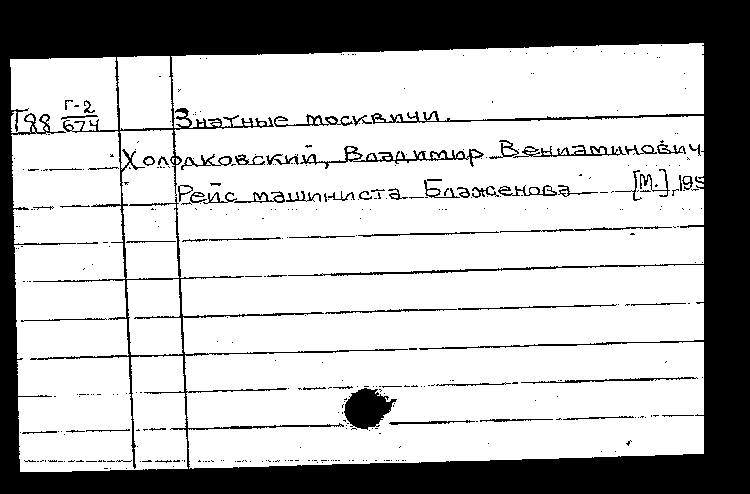 Т88 Г-2/674 Знатные москвичи.
Холодковский, Владимир Вениаминович
Рейс машиниста Блаженова [М.], 195